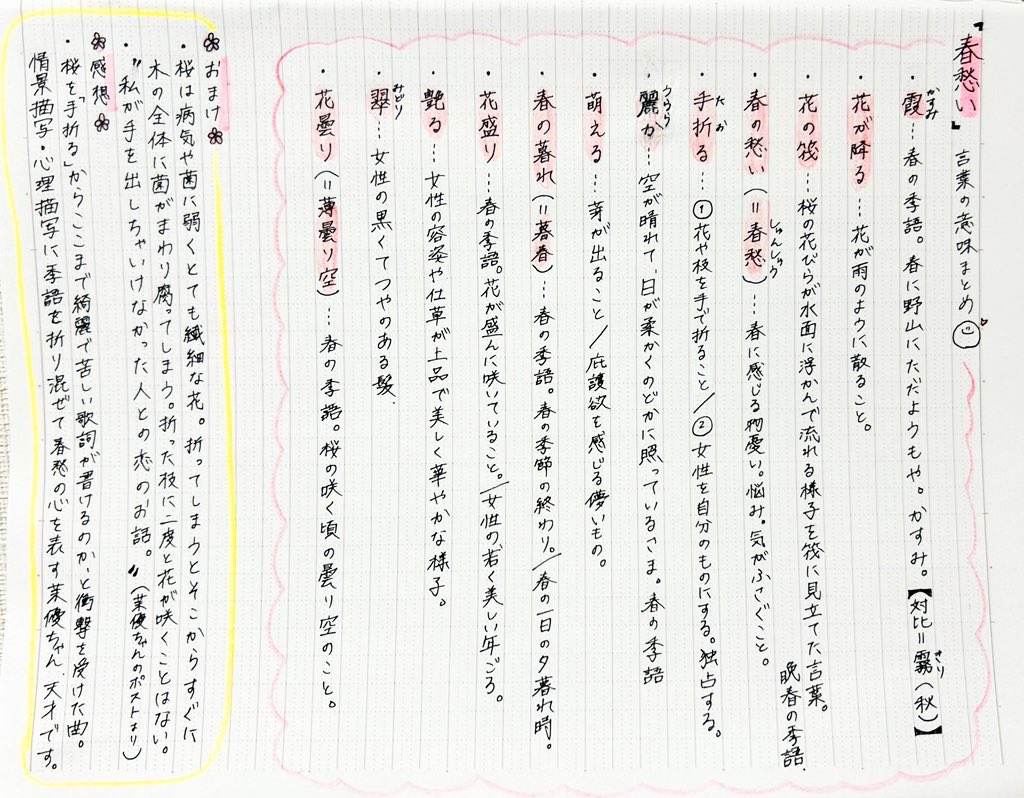 『春愁い』言葉の意味まとめ
・霞…春の季語。春に野山にただようもや。かすみ。【対比=霧(秋)】
かすみ
きり
・花が降る…花が雨のように散ること。
・花の筏…桜の花びらが水面に浮かんで流れる様子を筏に見立てた言葉。
晩春の季語
・春の愁い(=春愁)…春に感じる物憂い。悩み。気がふさぐこと。
しゅんしゅう
・手折る…①花や枝を手で折ること/②女性を自分のものにする。独占する。
た お
・麗か…空が晴れて、日が柔かくのどかに照っているさま。春の季語
うらら
・萌える…芽が出ること/庇護欲を感じる儚いもの。
・春の暮れ(=暮春)…春の季語。春の季節の終わり。/春の一日の夕暮れ時。
・花盛り…春の季語。花が盛んに咲いていること。/女性の、若く美しい年ごろ。
・艶る…女性の容姿や仕草が上品で美しく華やかな様子。
・翠…女性の黒くてつやのある髪.
みどり
・花曇り(=薄曇り空)…春の季語。桜の咲く頃の曇り空のこと。
おまけ
・桜は病気や菌に弱くとても繊細な花。折ってしまうとそこからすぐに
木の全体に菌がまわり腐ってしまう。折った枝に二度と花が咲くことはない。
・〝私が手を出しちゃいけなかった人との恋のお話。〟(茉優ちゃんのポストより)
感想
・桜を「手折る」からここまで綺麗で苦しい歌詞が書けるのか、と衝撃を受けた曲。
情景描写・心理描写に季語を折り混ぜて春愁の心を表す茉優ちゃん、天才です。